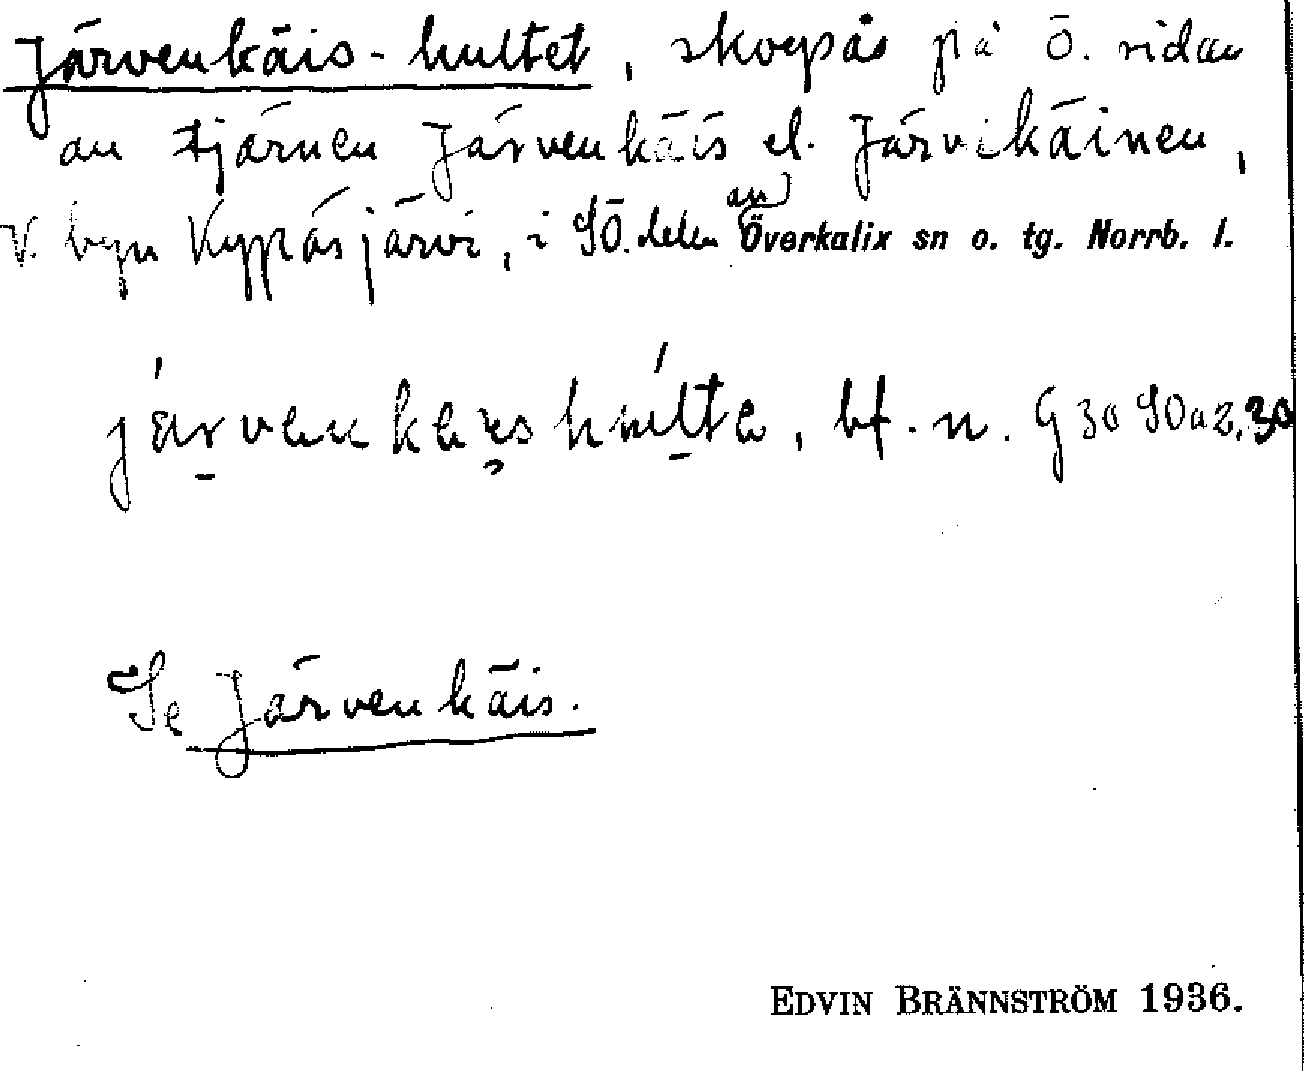 Järvenkäis-hultet, skogsås på Ö. sidan
av tjärnen Järvenkäis el. Järvikäinen,
V. byn Kypåsjärvi, i SÖ. delen av Överkalix sn o. tg. Norrb. l.
bf. n. G 30 SO a 2, 30
Se Järvenkäis.
EDVIN BRÄNNSTRÖM 1936.